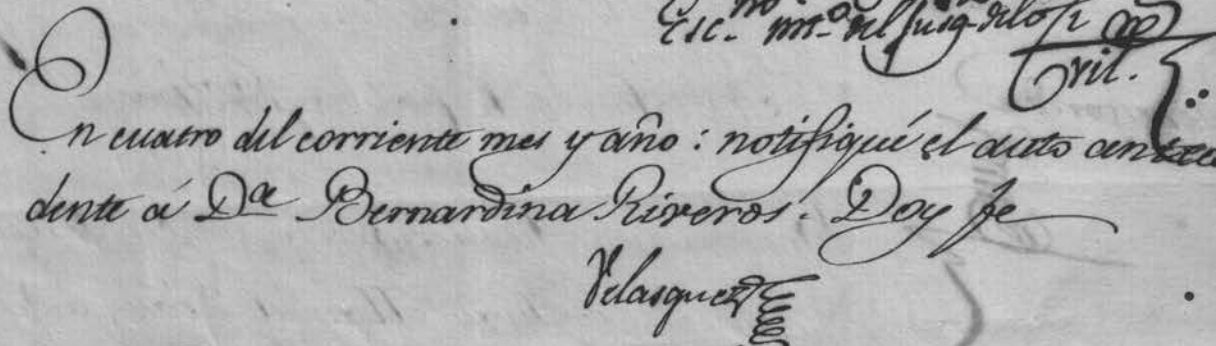 Esc.no mro. del Juzg. de lo
Civil.
En cuatro del corriente mes y año: notifiqué el auto antece
dente á Da Bernardina Riveros. Doy fe
Velasquez